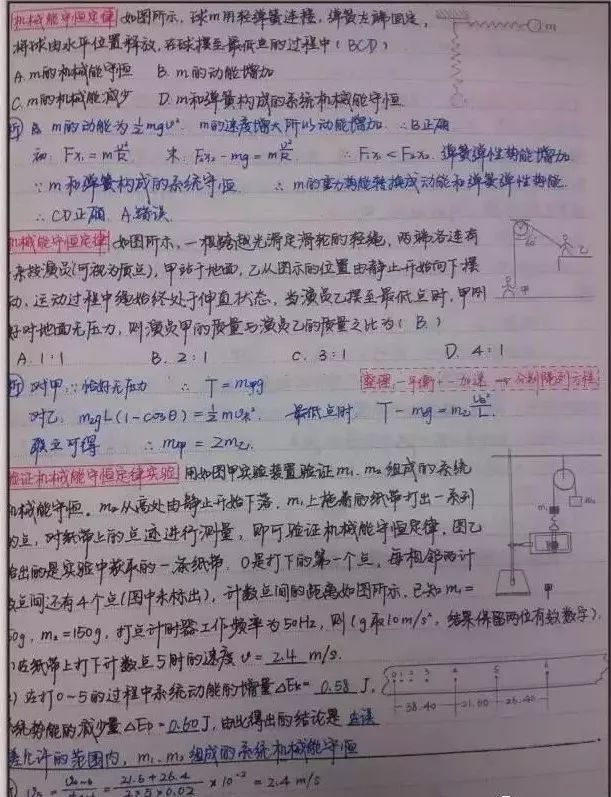 机械能守恒定律 如图所示,球m用轻弹簧连接,弹簧左端固定,
将球由水平位置释放,在球摆至最低点的过程中( BCD )
A. m的机械能守恒 B. m的动能增加
C. m的机械能减少 D. m和弹簧构成的系统机械能守恒
m的速度增大所以动能增加 ∴B正确
∴Fx₁<Fx₂. 弹簧弹性势能增加.
∵m和弹簧构成的系统守恒 ∴m的重力势能转换成动能和弹簧弹性势能.
∴CD正确 A错误
机械能守恒定律 如图所示,一根跨越光滑定滑轮的轻绳,两端各连有
杂技演员(可视为质点),甲站于地面,乙从图示的位置由静止开始向下摆
动,运动过程中绳始终处于伸直状态,当演员乙摆至最低点时,甲刚
好对地面无压力,则演员甲的质量与演员乙的质量之比为( B )
A. 1:1 B. 2:1 C. 3:1 D. 4:1
对甲:∵恰好无压力 ∴ T=m甲g
对乙: m₂gL(1-cosθ)=½mv² 最低点时
联立可得 ∴m甲=2m乙
验证机械能守恒定律实验 用如图甲实验装置验证m₁、m₂组成的系统
机械能守恒。m₂从高处由静止开始下落,m₁上拖着的纸带打出一系列
的点,对纸带上的点迹进行测量,即可验证机械能守恒定律,图乙
给出的是实验中获取的一条纸带:0是打下的第一个点,每相邻两计
数点间还有4个点(图中未标出),计数点间的距离如图所示,已知m₁=
50g,m₂=150g,打点计时器工作频率为50Hz,则(g取10m/s²,结果保留两位有效数字).
)在纸带上打下计数点5时的速度v=2.4 m/s.
)在打0~5的过程中系统动能的增量ΔEk=0.58 J,
系统势能的减少量ΔEp=0.60J,由此得出的结论是 在误
差允许的范围内,m₁、m₂组成的系统机械能守恒
= (21.6+26.4)/(2×5×0.02) ×10⁻² = 2.4 m/s
m
甲
乙
m₁
m₂
甲
0 1 2 3 4 5 6
38.40 21.60 26.40